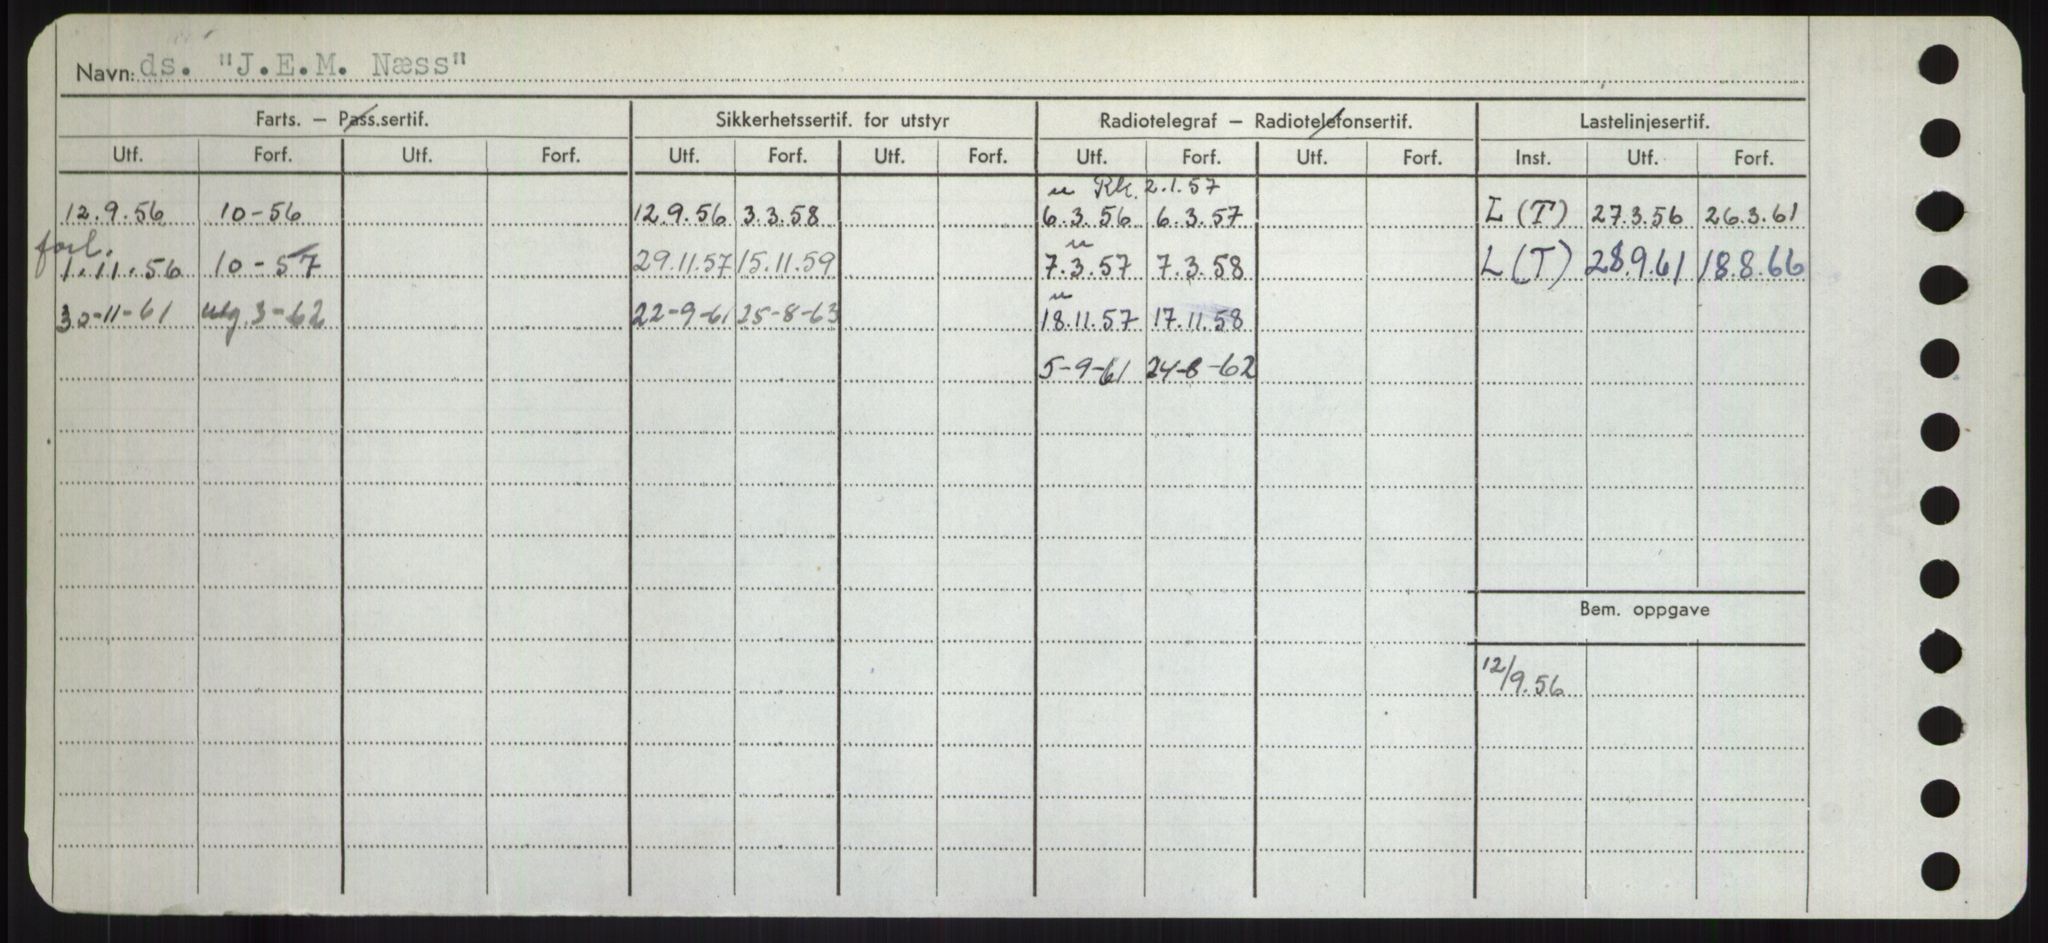 Navn: ds. "J.E.M. Næss"
Farts. — Pass.sertif. Sikkerhetssertif. for utstyr Radiotelegraf — Radiotelefonsertif. Lastelinjesertif.
Utf. Forf. Utf. Forf. Utf. Forf. Utf. Forf. Utf. Forf. Utf. Forf. Inst. Utf. Forf.
u Rk. 2.1.57
12.9.56 10-56 12.9.56 3.3.58 6.3.56 6.3.57 L (T) 27.3.56 26.3.61
forl. u
1.11.56 10-57 29.11.57 15.11.59 7.3.57 7.3.58 L (T) 28.9.61 18.8.66
u
30-11-61 utg. 3-62 22-9-61 25-8-63 18.11.57 17.11.58
5-9-61 24-8-62
Bem. oppgave
12/9.56